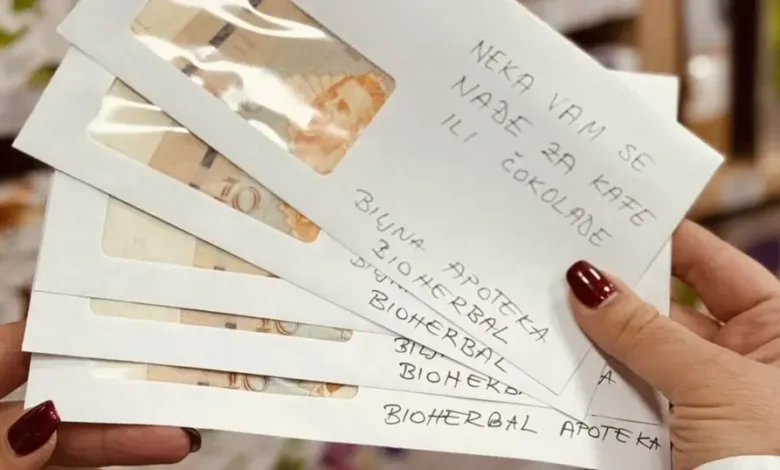 NEKA VAM SE
NAĐE ZA KAFE
ILI ČOKOLADE
BILJNA APOTEKA
BIOHERBAL
10
BILJN
BIOHERBAL
10
BILJN
BIOHERB
A
BIOHERBAL APOTEKA